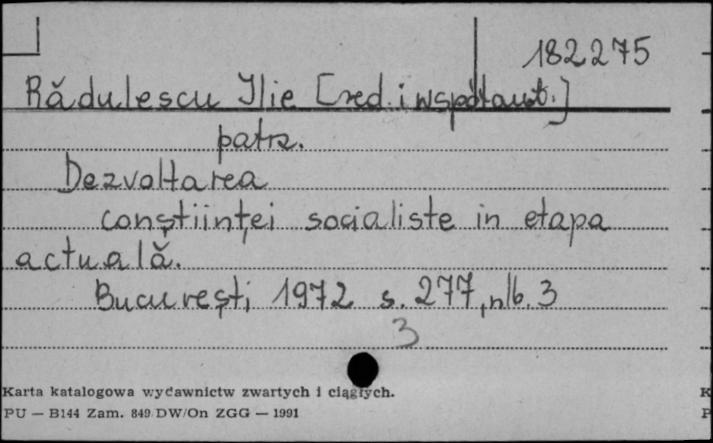 182275
Rădulescu Ilie [red. i współaut.]
patrz.
Dezvoltarea
conştiinţei socialiste in etapa
actuală.
Bucureşti 1972 s. 277, nlb. 3
3
Karta katalogowa wydawnictw zwartych i ciągłych.
PU — B144 Zam. 849 DW/On ZGG — 1991